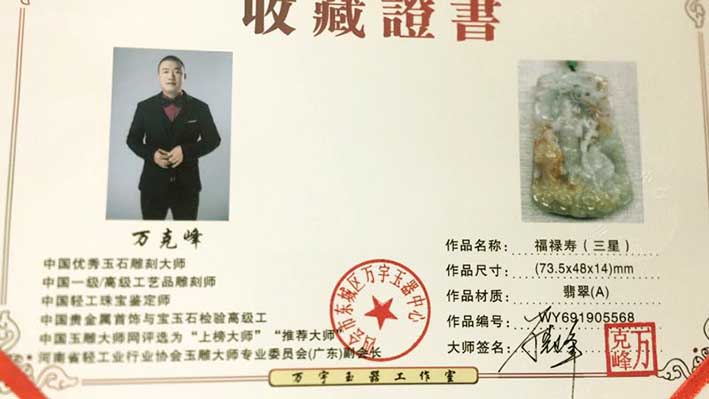 收藏證書
万克峰
中国优秀玉石雕刻大师
中国一级/高级工艺品雕刻师
中国轻工珠宝鉴定师
中国贵金属首饰与宝玉石检验高级工
中国玉雕大师网评选为“上榜大师”“推荐大师”
河南省轻工业行业协会玉雕大师专业委员会(广东)副会长
四会市东城区万字玉器中心
作品名称：福禄寿（三星）
作品尺寸：(73.5x48x14)mm
作品材质：翡翠(A)
作品编号：WY691905568
大师签名：万克峰
万克峰
万字玉器工作室